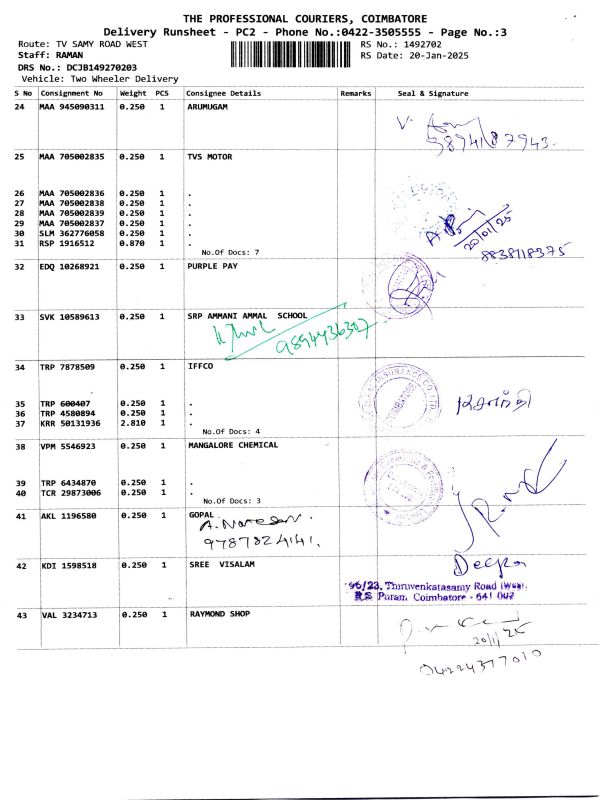 THE PROFESSIONAL COURIERS, COIMBATORE
Delivery Runsheet - PC2 - Phone No.:0422-3505555 - Page No.:3
Route: TV SAMY ROAD WEST RS No.: 1492702
Staff: RAMAN RS Date: 20-Jan-2025
DRS No.: DCJB149270203
Vehicle: Two Wheeler Delivery
S No Consignment No Weight PCS Consignee Details Remarks Seal & Signature
24 MAA 945090311 0.250 1 ARUMUGAM
25 MAA 705002835 0.250 1 TVS MOTOR
26 MAA 705002836 0.250 1 .
27 MAA 705002838 0.250 1 .
28 MAA 705002839 0.250 1 .
29 MAA 705002837 0.250 1 .
30 SLM 362776058 0.250 1 .
31 RSP 1916512 0.870 1 .
20/01/25
No.Of Docs: 7
8838118375
32 EDQ 10268921 0.250 1 PURPLE PAY
33 SVK 10589613 0.250 1 SRP AMMANI AMMAL SCHOOL
9894436307
34 TRP 7878509 0.250 1 IFFCO
35 TRP 600407 0.250 1 .
36 TRP 4580894 0.250 1 .
37 KRR 50131936 2.810 1 .
No.Of Docs: 4
38 VPM 5546923 0.250 1 MANGALORE CHEMICAL
39 TRP 6434870 0.250 1 .
40 TCR 29873006 0.250 1 .
No.Of Docs: 3
41 AKL 1196580 0.250 1 GOPAL
A. Naresan.
9787824141.
42 KDI 1598518 0.250 1 SREE VISALAM
Deepa
96/23, Thiruvenkatasamy Road (West),
R.S Puram, Coimbatore - 641 002
43 VAL 3234713 0.250 1 RAYMOND SHOP
20/1/25
04224377010